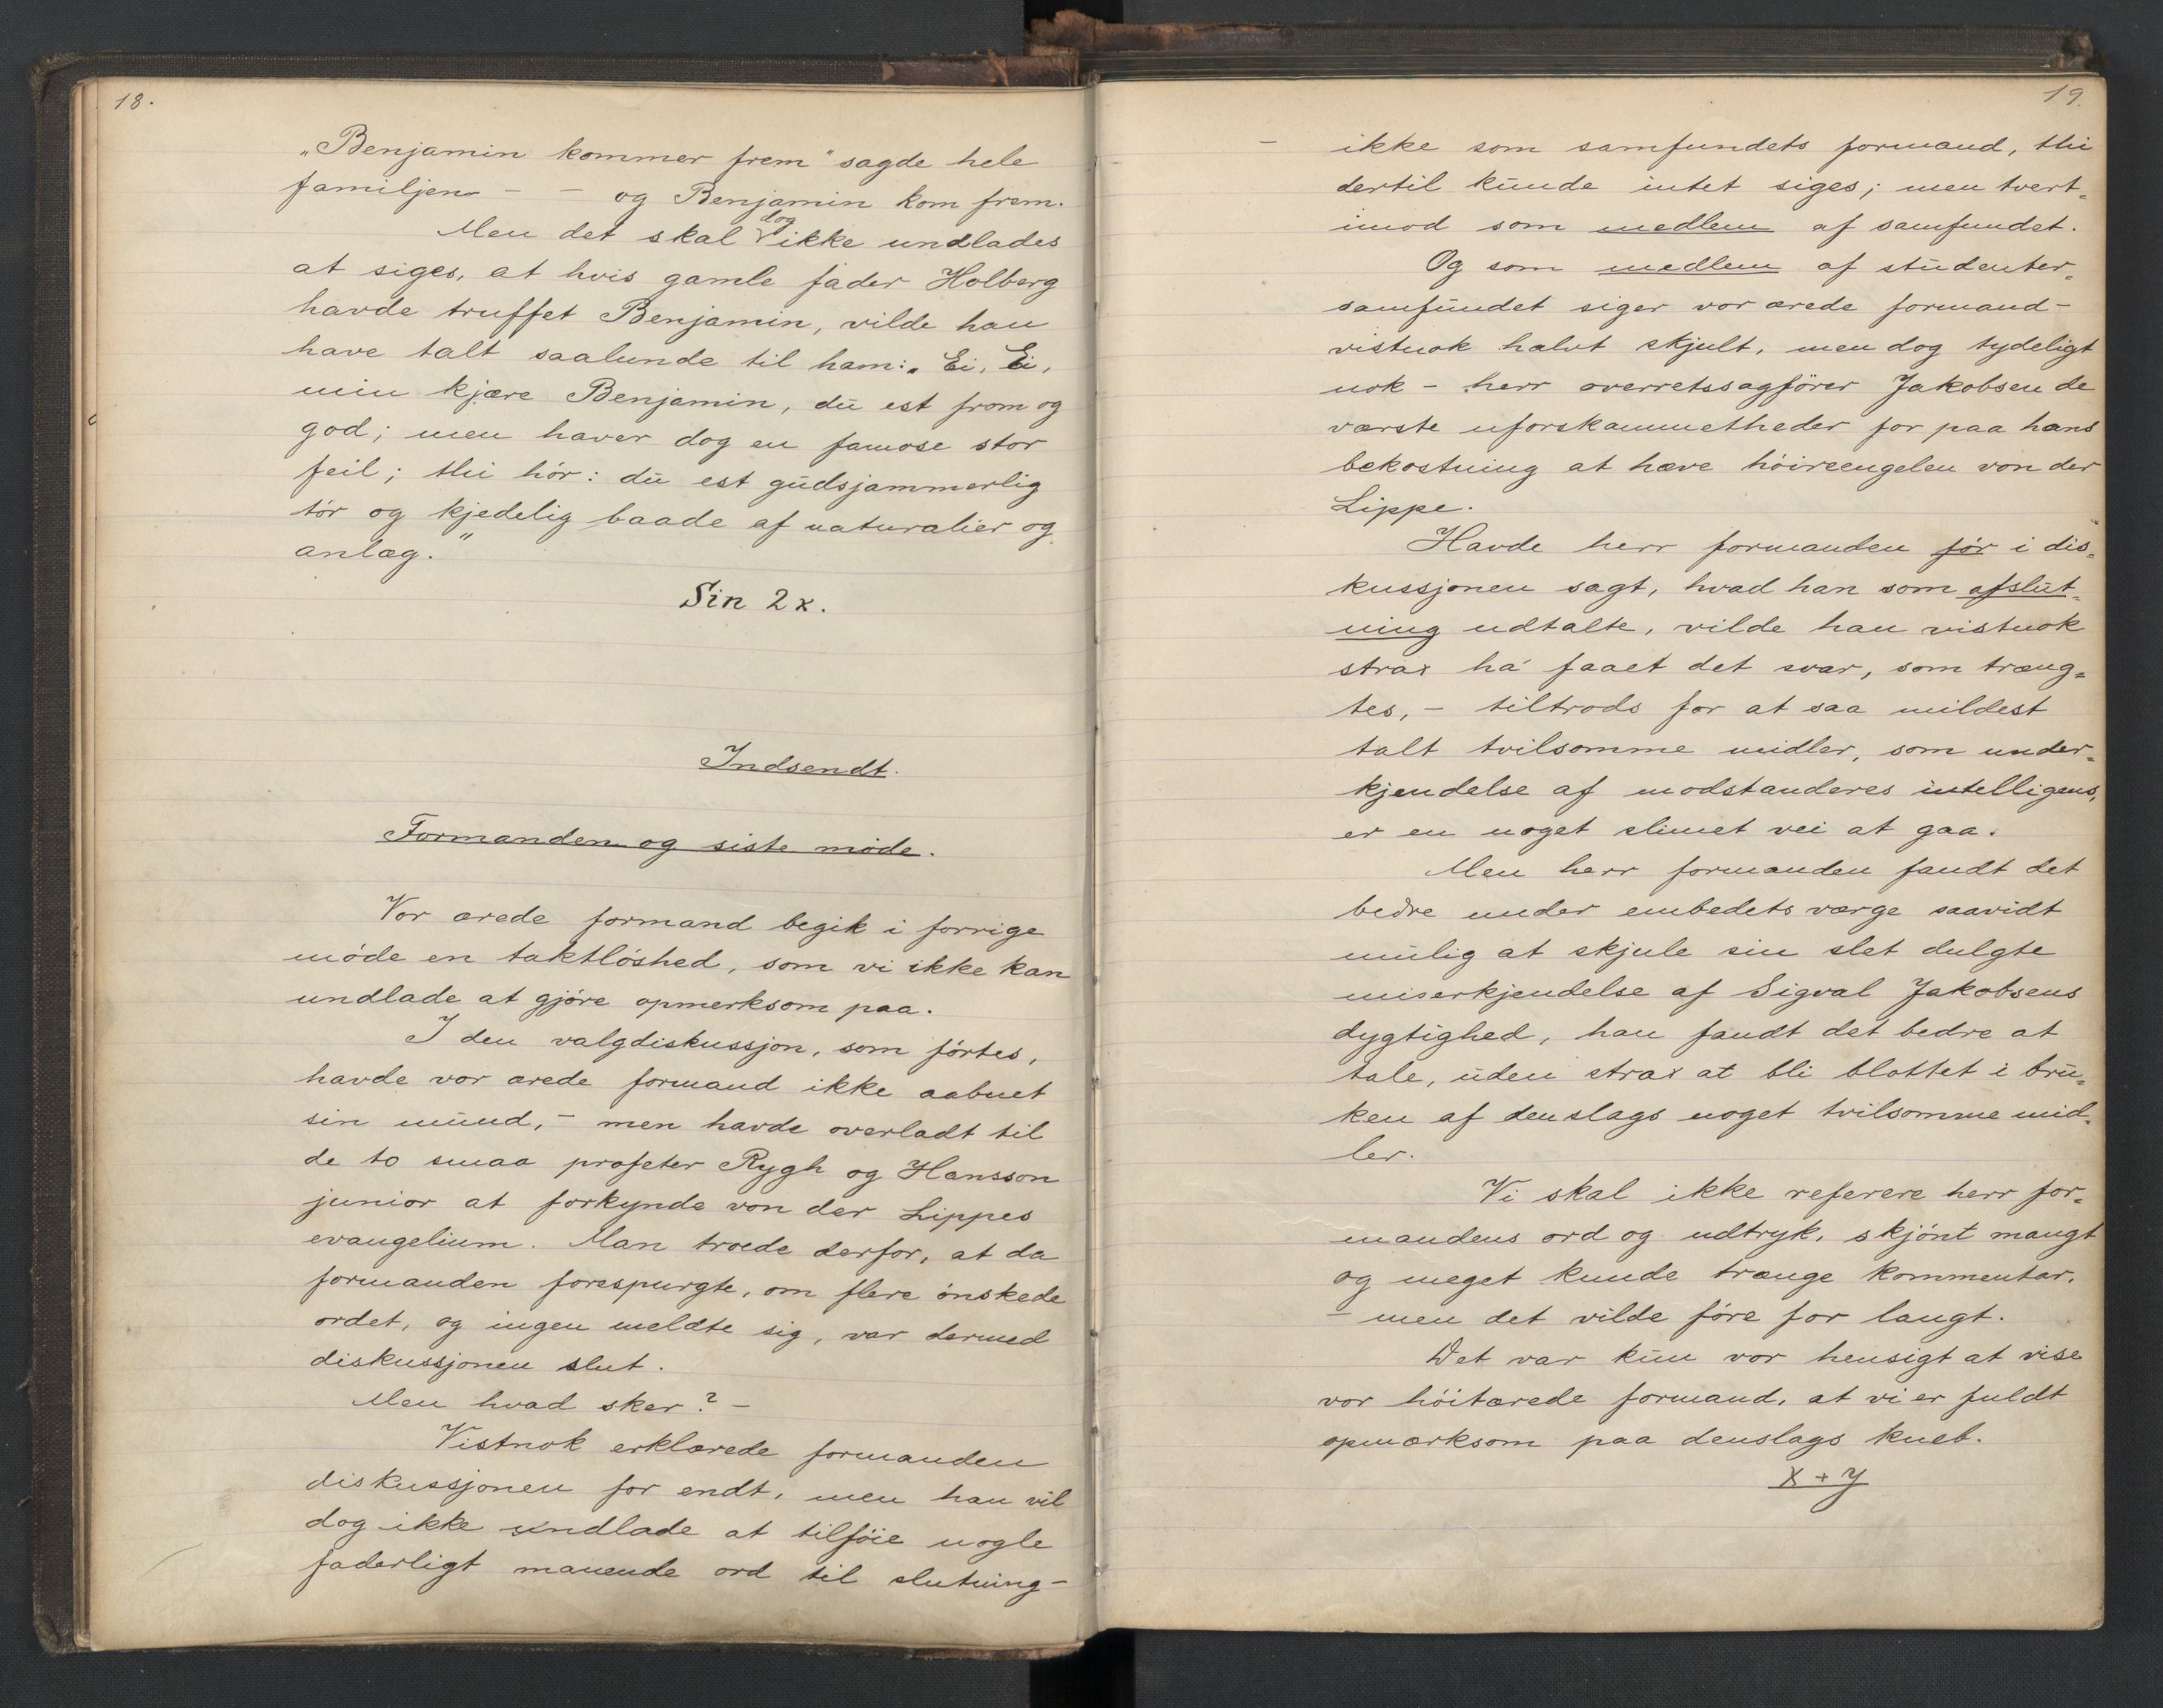 18.
„Benjamin kommer frem" sagde hele
familjen - - og Benjamin kom frem.
Men det skal dog ikke undlades
at siges, at hvis gamle fader Holberg
havde truffet Benjamin, vilde han
have talt saalunde til ham: „Ei, Ei,
min kjære Benjamin, du est from og
god; men haver dog en famose stor
feil; thi hör: du est gudsjammerlig
tör og kjedelig baade af naturalier og
anlæg."
Sin 2x.
Indsendt.
Formanden og siste möde.
Vor ærede formand begik i forrige
möde en taktlöshed, som vi ikke kan
undlade at gjöre opmerksom paa.
I den valgdiskussjon, som förtes,
havde vor ærede formand ikke aabnet
sin mund, - men havde overladt til
de to smaa profeter Rygh og Hansson
junior at forkynde von der Lippes
evangelium. Man troede derfor, at da
formanden forespurgte, om flere önskede
ordet, og ingen meldte sig, var dermed
diskussjonen slut.
Men hvad sker? -
Vistnok erklærede formanden
diskussjonen for endt, men han vil
dog ikke undlade at tilföie nogle
faderligt manende ord til slutning -
19.
- ikke som samfundets formand, thi
dertil kunde intet siges; men tvert=
imod som medlem af samfundet.
Og som medlem af studenter=
samfundet siger vor ærede formand -
vistnok halvt skjult, men dog tydeligt
nok - herr overretssagförer Jakobsen de
værste uforskammetheder for paa hans
bekostning at hæve höireengelen von der
Lippe.
Havde herr formanden för i dis=
kussjonen sagt, hvad han som afslut=
ning udtalte, vilde han vistnok
strax ha' faaet det svar, som træng=
tes, - tiltrods for at saa mildest
talt tvilsomme midler, som under=
kjendelse af modstanderes intelligens,
er en noget slimet vei at gaa.
Men herr formanden fandt det
bedre under embedets værge saavidt
mulig at skjule sin slet dulgte
miserkjendelse af Sigval Jakobsens
dygtighed, han fandt det bedre at
tale, uden strax at bli blottet i bru=
ken af denslags noget tvilsomme mid=
ler.
Vi skal ikke referere herr for=
mandens ord og udtryk, skjönt mangt
og meget kunde trænge kommentar,
- men det vilde före for langt.
Det var kun vor hensigt at vise
vor höitærede formand, at vi er fuldt
opmærksom paa denslags kneb.
X + Y